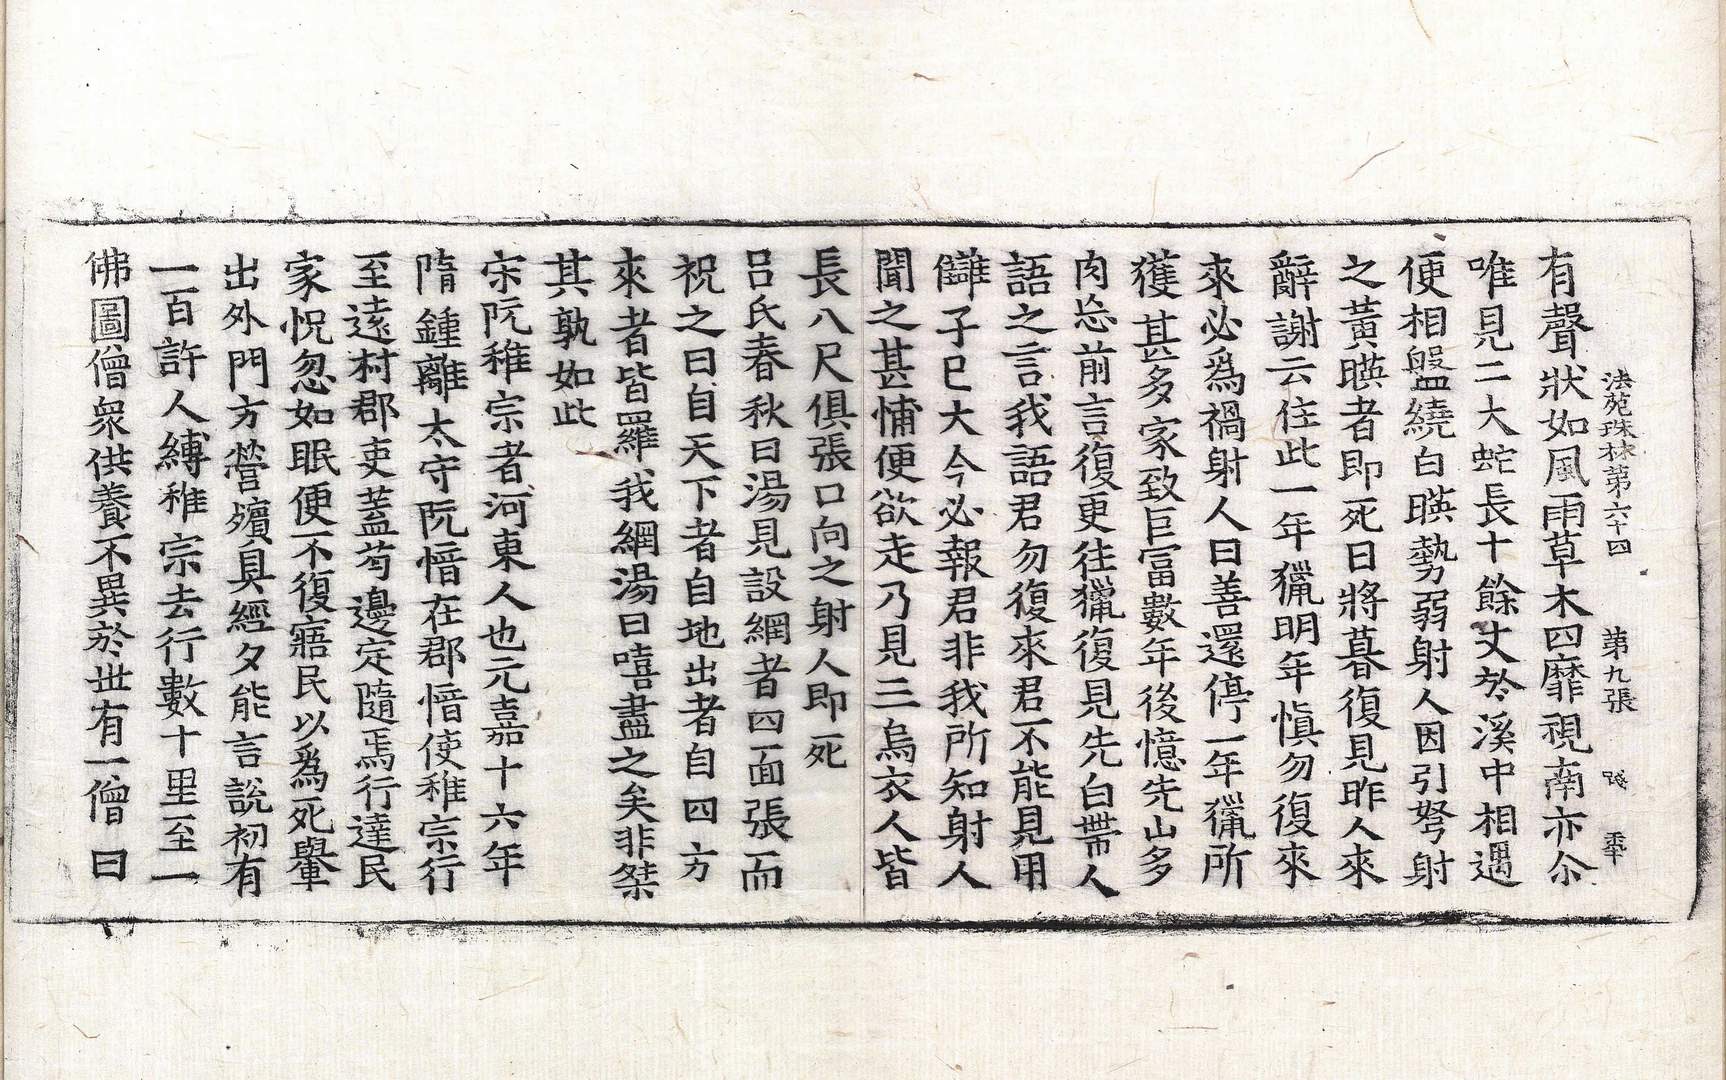 法苑珠林第六十四 第九張
有聲狀如風雨草木四靡視南亦尒
唯見二大蛇長十餘丈於溪中相遇
便相盤繞白暎勢弱射人因引弩射
之黃暎者即死日將暮復見昨人來
辭謝云住此一年獵明年愼勿復來
來必爲禍射人曰善還停一年獵所
獲甚多家致巨富數年後憶先山多
肉忘前言復更往獵復見先白帶人
語之言我語君勿復來君不能見用
讎子巳大今必報君非我所知射人
聞之甚怖便欲走乃見三烏衣人皆
長八尺俱張口向之射人即死
呂氏春秋曰湯見設網者四面張而
祝之曰自天下者自地出者自四方
來者皆羅我網湯曰嘻盡之矣非桀
其孰如此
宋阮稚宗者河東人也元嘉十六年
隋鍾離太守阮愔在郡愔使稚宗行
至遠村郡吏蓋苟邊定隨焉行達民
家怳忽如眠便不復寤民以爲死轝
出外門方營殯具經夕能言說初有
一百許人縛稚宗去行數十里至一
佛圖僧衆供養不異於世有一僧曰